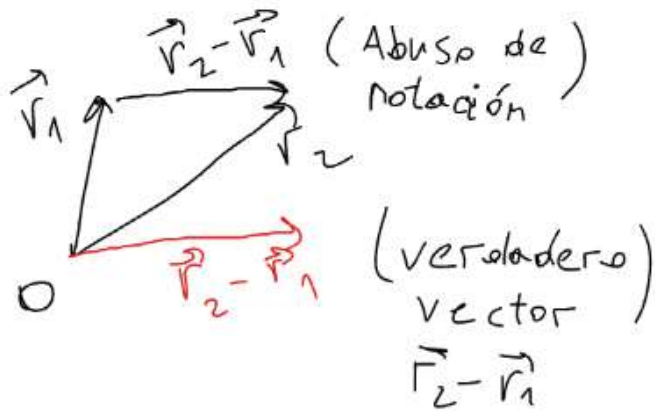 r⃗₂-r⃗₁ (Abuso de
notación)
r⃗₁
r⃗₂
O
r⃗₂-r⃗₁
(verdadero
vector)
r⃗₂-r⃗₁